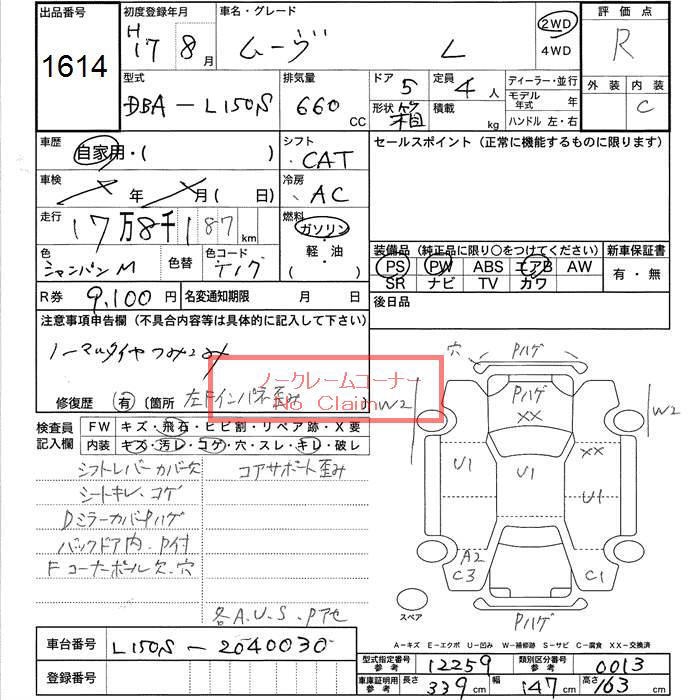 出品番号
1614
初度登録年月
H 17 8月
車名・グレード
ムーヴ L
2WD
4WD
評価点
R
外装 内装
C
型式
DBA-L150S
排気量
660 CC
ドア 5
形状 箱
定員 4人
積載 kg
ディーラー・並行
モデル年式 年
ハンドル 左・右
車歴
自家用・( )
シフト
CAT
セールスポイント(正常に機能するものに限ります)
車検
年 月( 日)
冷房
AC
走行
17万8千187km
燃料
ガソリン・
軽・油
( )
色
シャンパンM
色替
色コード
T17
装備品(純正品に限り○をつけてください)
新車保証書
PS PW ABS エアB AW
SR ナビ TV カワ
有・無
R券 9,100円
名変通知期限 月 日
後日品
注意事項申告欄(不具合内容等は具体的に記入して下さい)
ノーマルタイヤつみこみ
ノークレームコーナー
No Claim
修復歴 有 〔箇所 左Fインパネ歪み
検査員記入欄
FW キズ・飛石・ヒビ割・リペア跡・X要
内装 キズ・汚レ・コゲ・穴・スレ・キレ・破レ
シフトレバーカバー欠
コアサポート歪み
シートキレ、コゲ
DミラーカバーPハゲ
バックドア内、P付
Fコーナーポール欠、穴
各A.U.S.Pアセ
穴
Pハゲ
Pハゲ
XX
W2
W2
U1
U1
XX
U1
A2
C3
C1
Pハゲ
スペア
A-キズ E-エクボ U-凹み W-補修跡 S-サビ C-腐食 XX-交換済
車台番号 L150S-2040030
登録番号
型式指定番号参考 12259
類別区分番号参考 0013
車庫証明用参考 長さ 339cm 幅 147cm 高さ 163cm